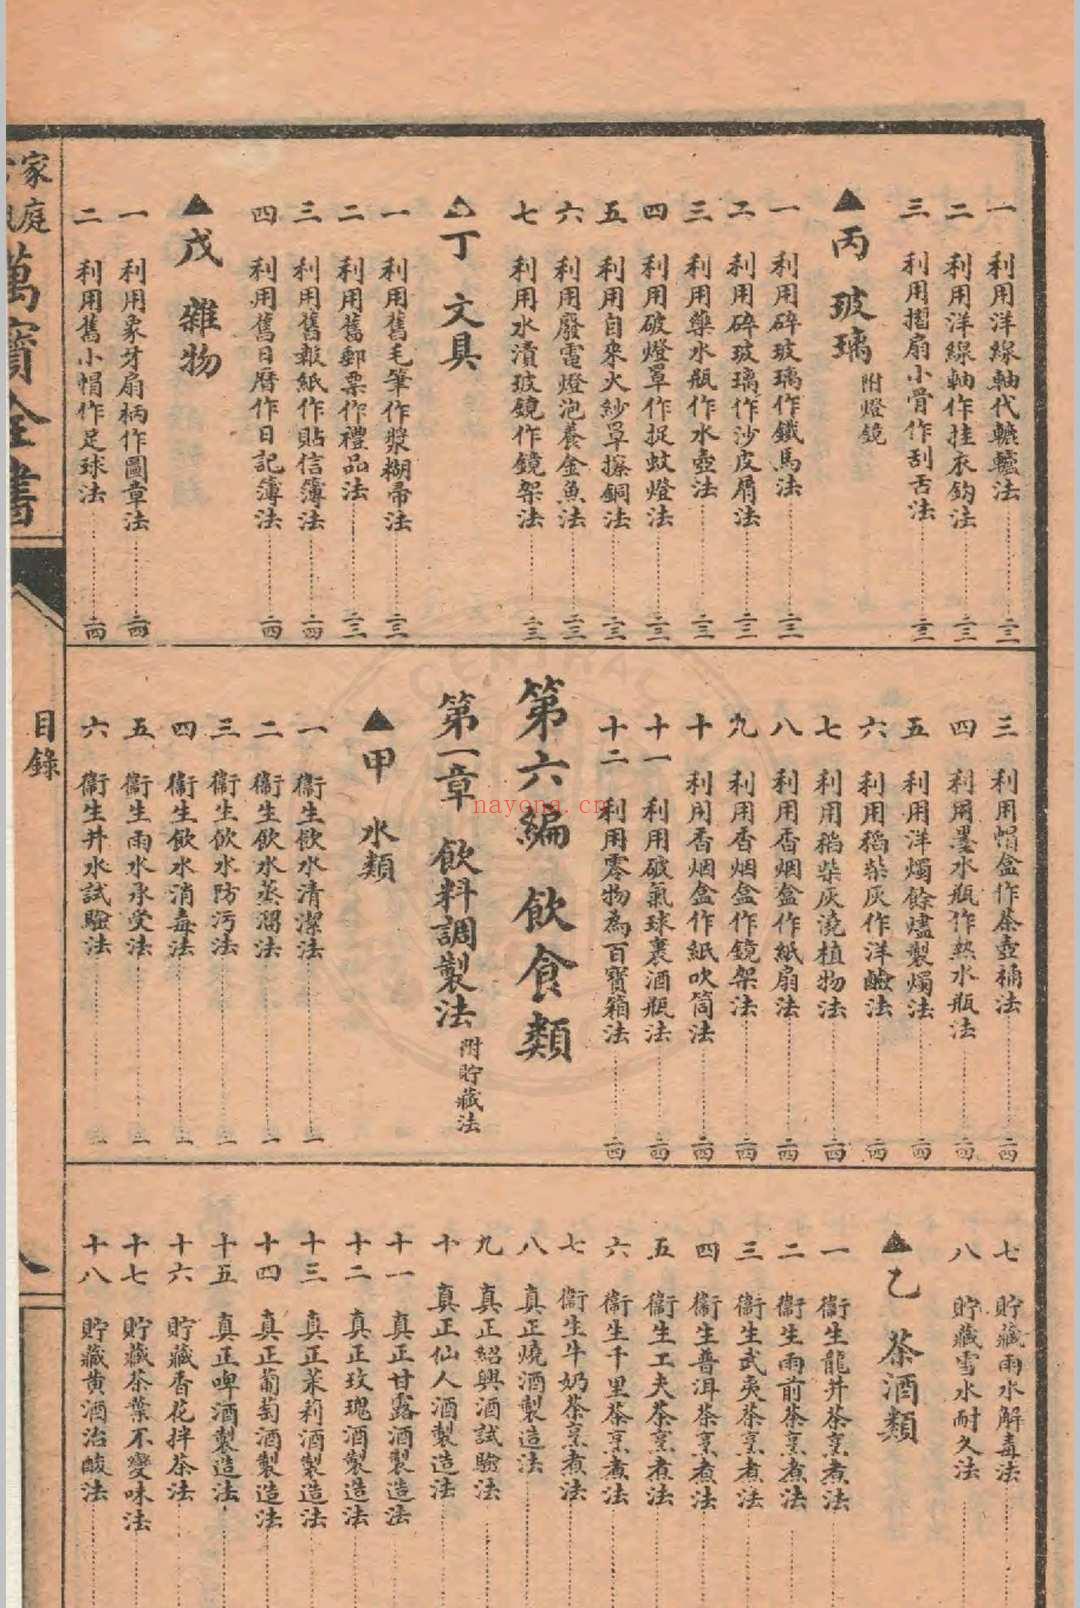 一 利用洋線軸代轆轤法 二三
二 利用洋線軸作挂衣鈎法 二三
三 利用摺扇小骨作刮舌法 二三
▲丙 玻璃 附燈鏡
一 利用碎玻璃作鐵馬法 二三
二 利用碎玻璃作沙皮屑法 二三
三 利用藥水瓶作水壺法 二三
四 利用破燈罩作捉蚊燈法 二三
五 利用自來火紗罩擦銅法 二三
六 利用廢電燈泡養金魚法 二三
七 利用水漬玻鏡作鏡架法 二三
△丁 文具
一 利用舊毛筆作漿糊帚法 二三
二 利用舊郵票作禮品法 二三
三 利用舊報紙作貼信簿法 二四
四 利用舊日曆作日記簿法 二四
▲戊 雜物
一 利用象牙扇柄作圖章法 二四
二 利用舊小帽作足球法 二四
三 利用帽盒作茶壺桶法 二四
四 利用墨水瓶作熱水瓶法 二四
五 利用洋燭餘燼製燭法 二四
六 利用稻柴灰作洋鹼法 二四
七 利用稻柴灰澆植物法 二四
八 利用香烟盒作紙扇法 二四
九 利用香烟盒作鏡架法 二四
十 利用香烟盒作紙吹筒法 二四
十一 利用破氣球裹酒瓶法 二四
十二 利用零物為百寶箱法 二四
第六編 飲食類
第一章 飲料調製法 附貯藏法
▲甲 水類
一 衞生飲水清潔法 一
二 衞生飲水蒸溜法 一
三 衞生飲水防污法
四 衞生飲水消毒法
五 衞生雨水承受法
六 衞生井水試驗法
七 貯藏雨水解毒法
八 貯藏雪水耐久法
▲乙 茶酒類
一 衞生龍井茶烹煮法
二 衞生雨前茶烹煮法
三 衞生武夷茶烹煮法
四 衞生普洱茶烹煮法
五 衞生工夫茶烹煮法
六 衞生千里茶烹煮法
七 衞生牛奶茶烹煮法
八 真正燒酒製造法
九 真正紹興酒試驗法
十 真正仙人酒製造法
十一 真正甘露酒製造法
十二 真正玫瑰酒製造法
十三 真正茉莉酒製造法
十四 真正葡萄酒製造法
十五 真正啤酒製造法
十六 貯藏香花拌茶法
十七 貯藏茶葉不變味法
十八 貯藏黄酒治酸法
家庭
萬寶全書
目錄
八
nayona.cn
CENTRAL